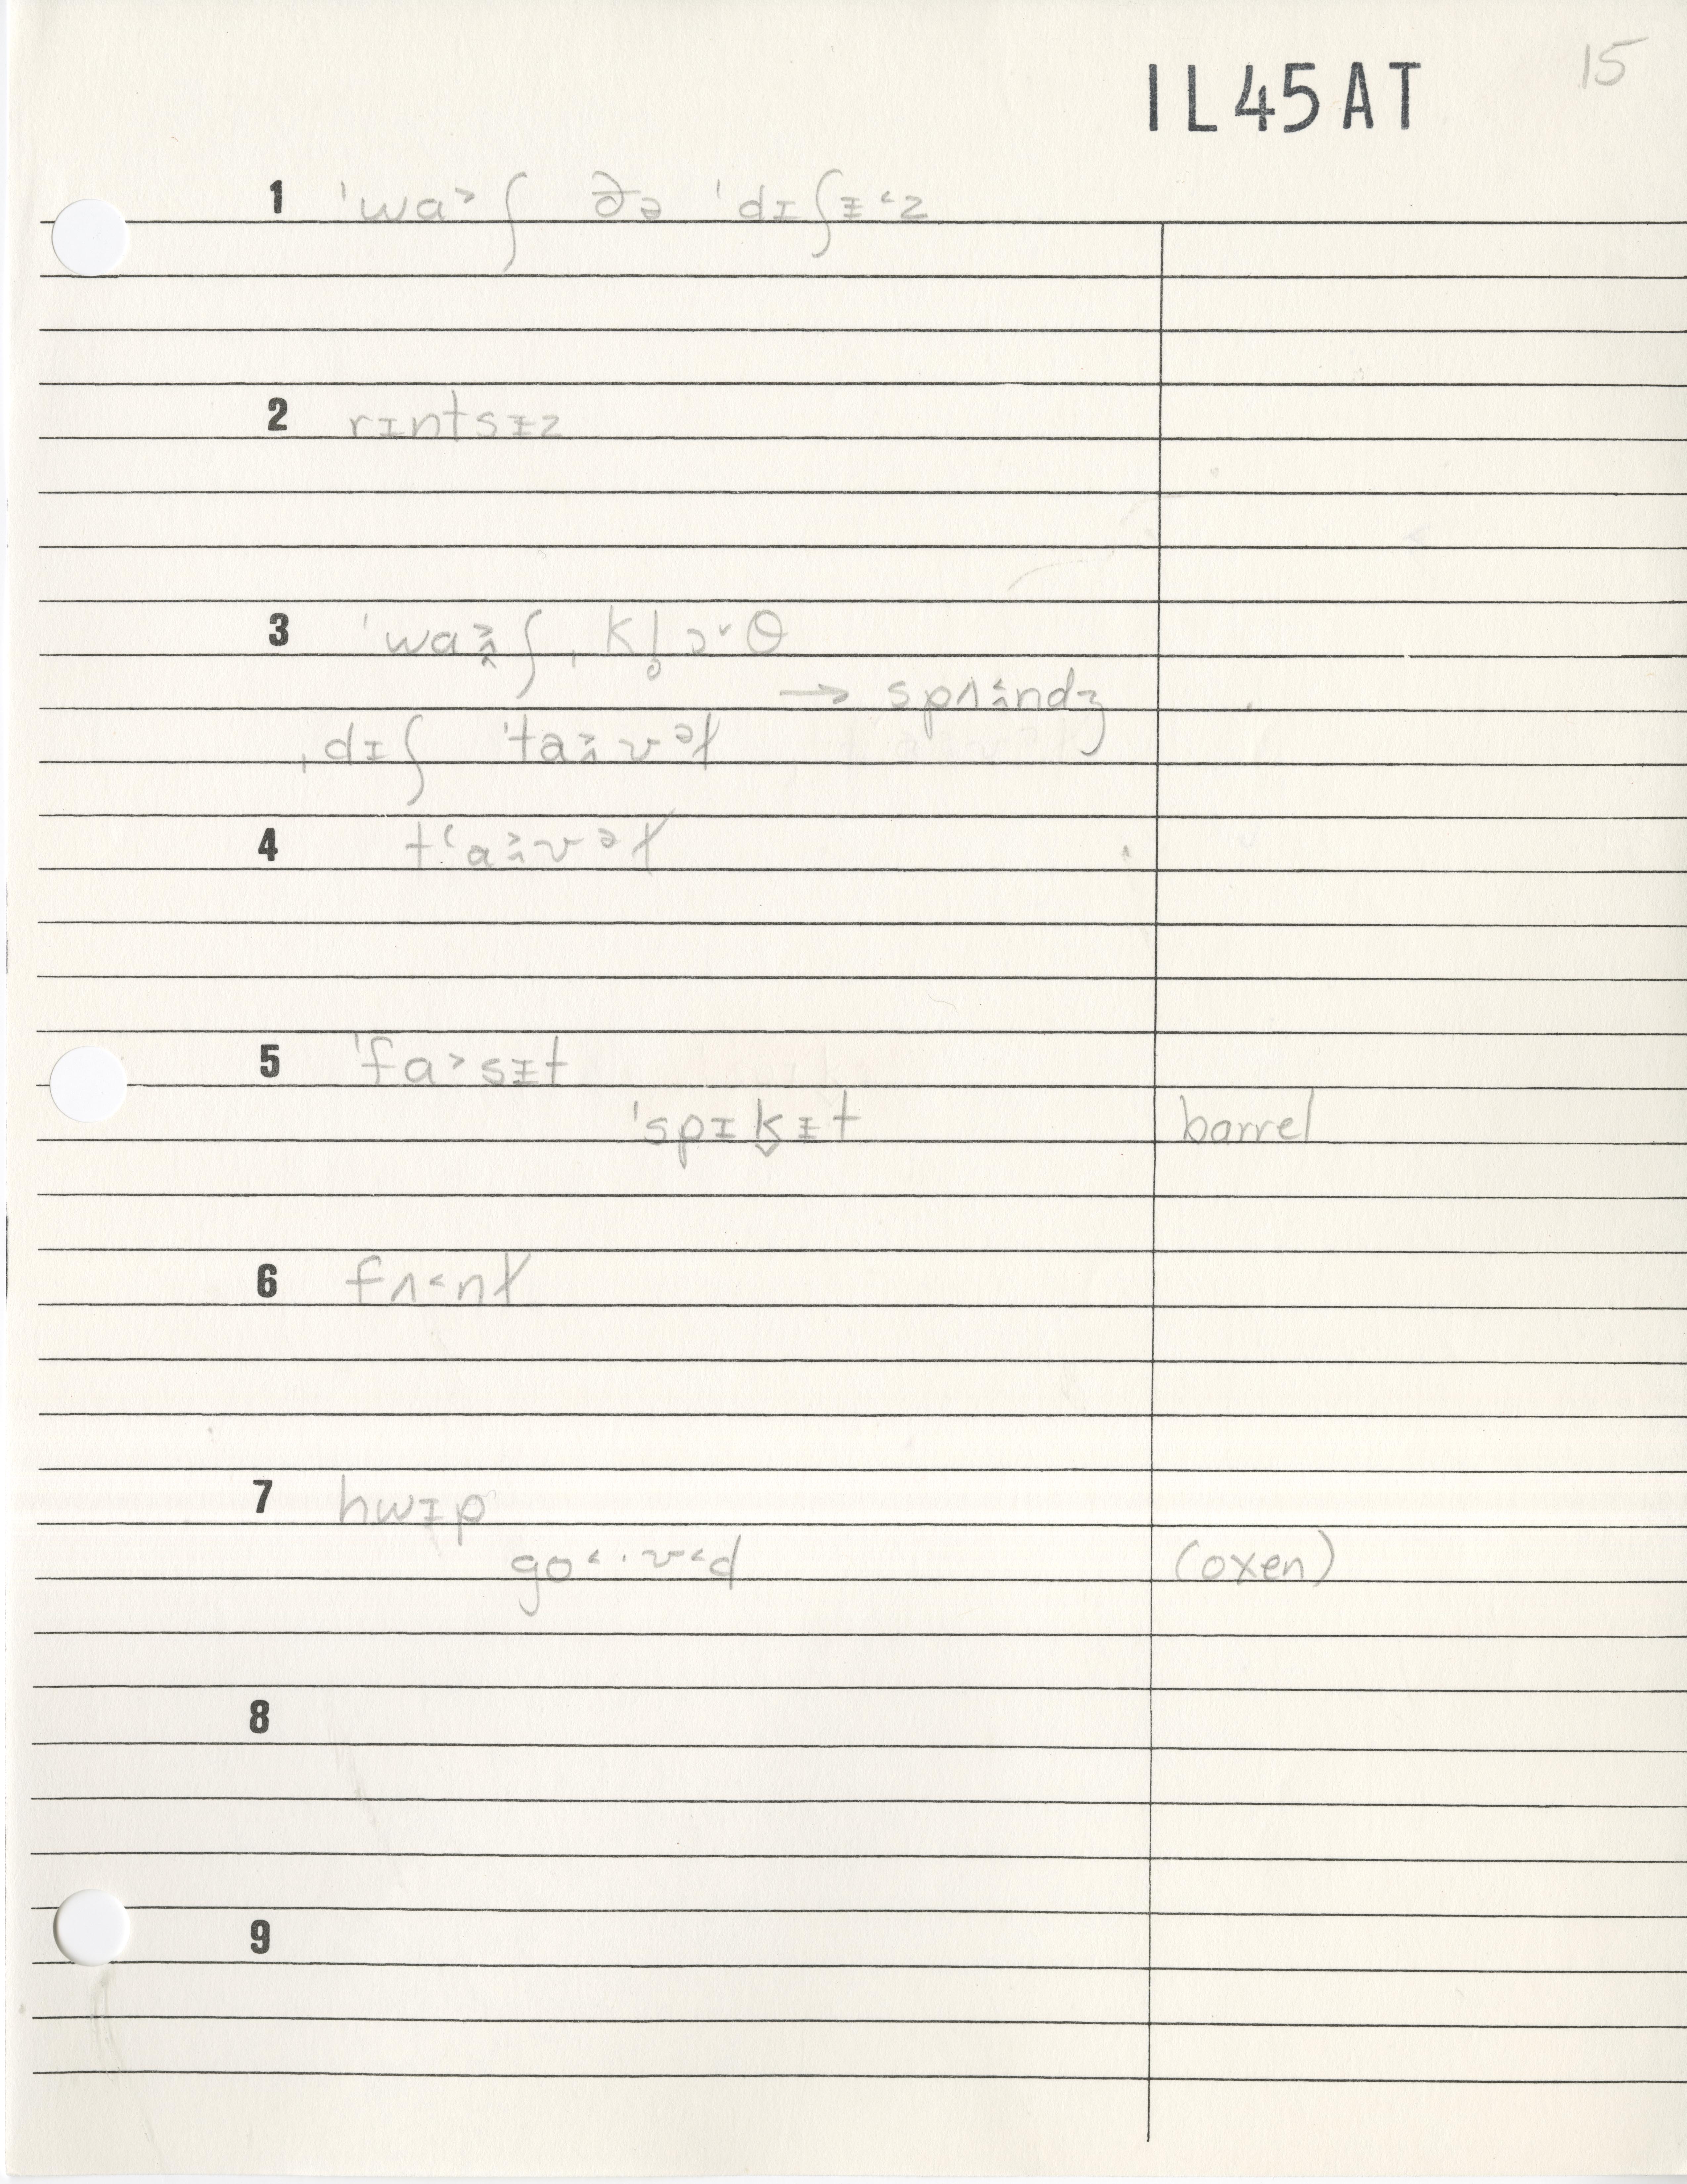 15
IL45AT
1 ˈwa˃ʃ ðə ˈdɪʃɨ˂z
2 rɪntsɨz
3 ˈwa˃̭ʃˌkl̥ɔ˅θ
→ spʌ˂̭ndʒ
ˌdɪʃ ˈta˃̭ʊəɫ
4 tʻa˃̭ʊəɫ
5 ˈfa˃sɨt
ˈspɪk̬ɨt barrel
6 fʌ˂nɫ
7 hwɨp
go˂·ʊ˂d (oxen)
8
9